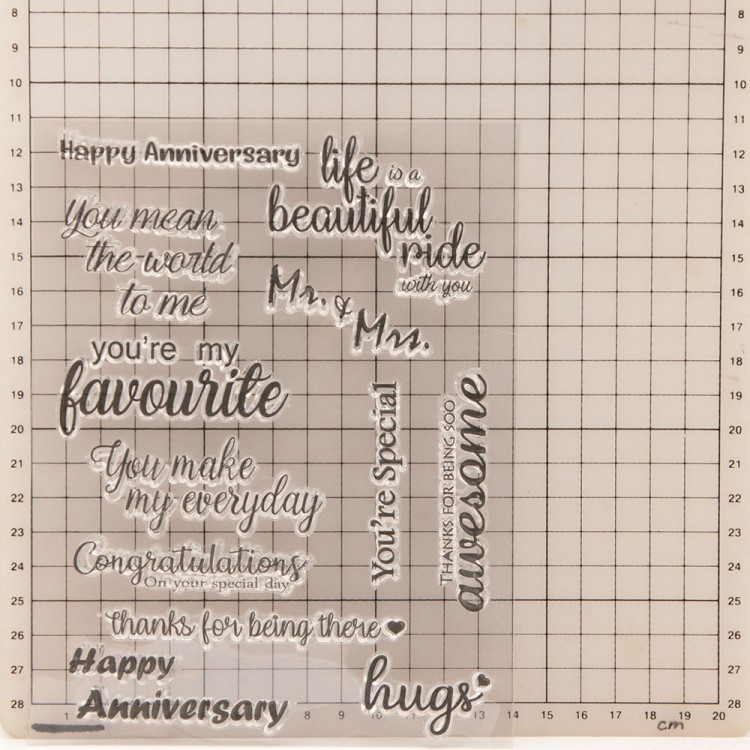 8 8
9 9
10 10
11 11
12 12
13 13
14 14
15 15
16 16
17 17
18 18
19 19
20 20
21 21
22 22
23 23
24 24
25 25
26 26
27 27
28 28
Happy Anniversary
life is a
beautiful
ride
with you
You mean
the world
to me
Mr. &
Mrs.
you're my
favourite
You're Special
THANKS FOR BEING SOO
awesome
You make
my everyday
Congratulations
On your special day
thanks for being there
Happy
Anniversary
hugs
1 8 9 10 11 12 13 14 15 16 17 18 19 20
cm